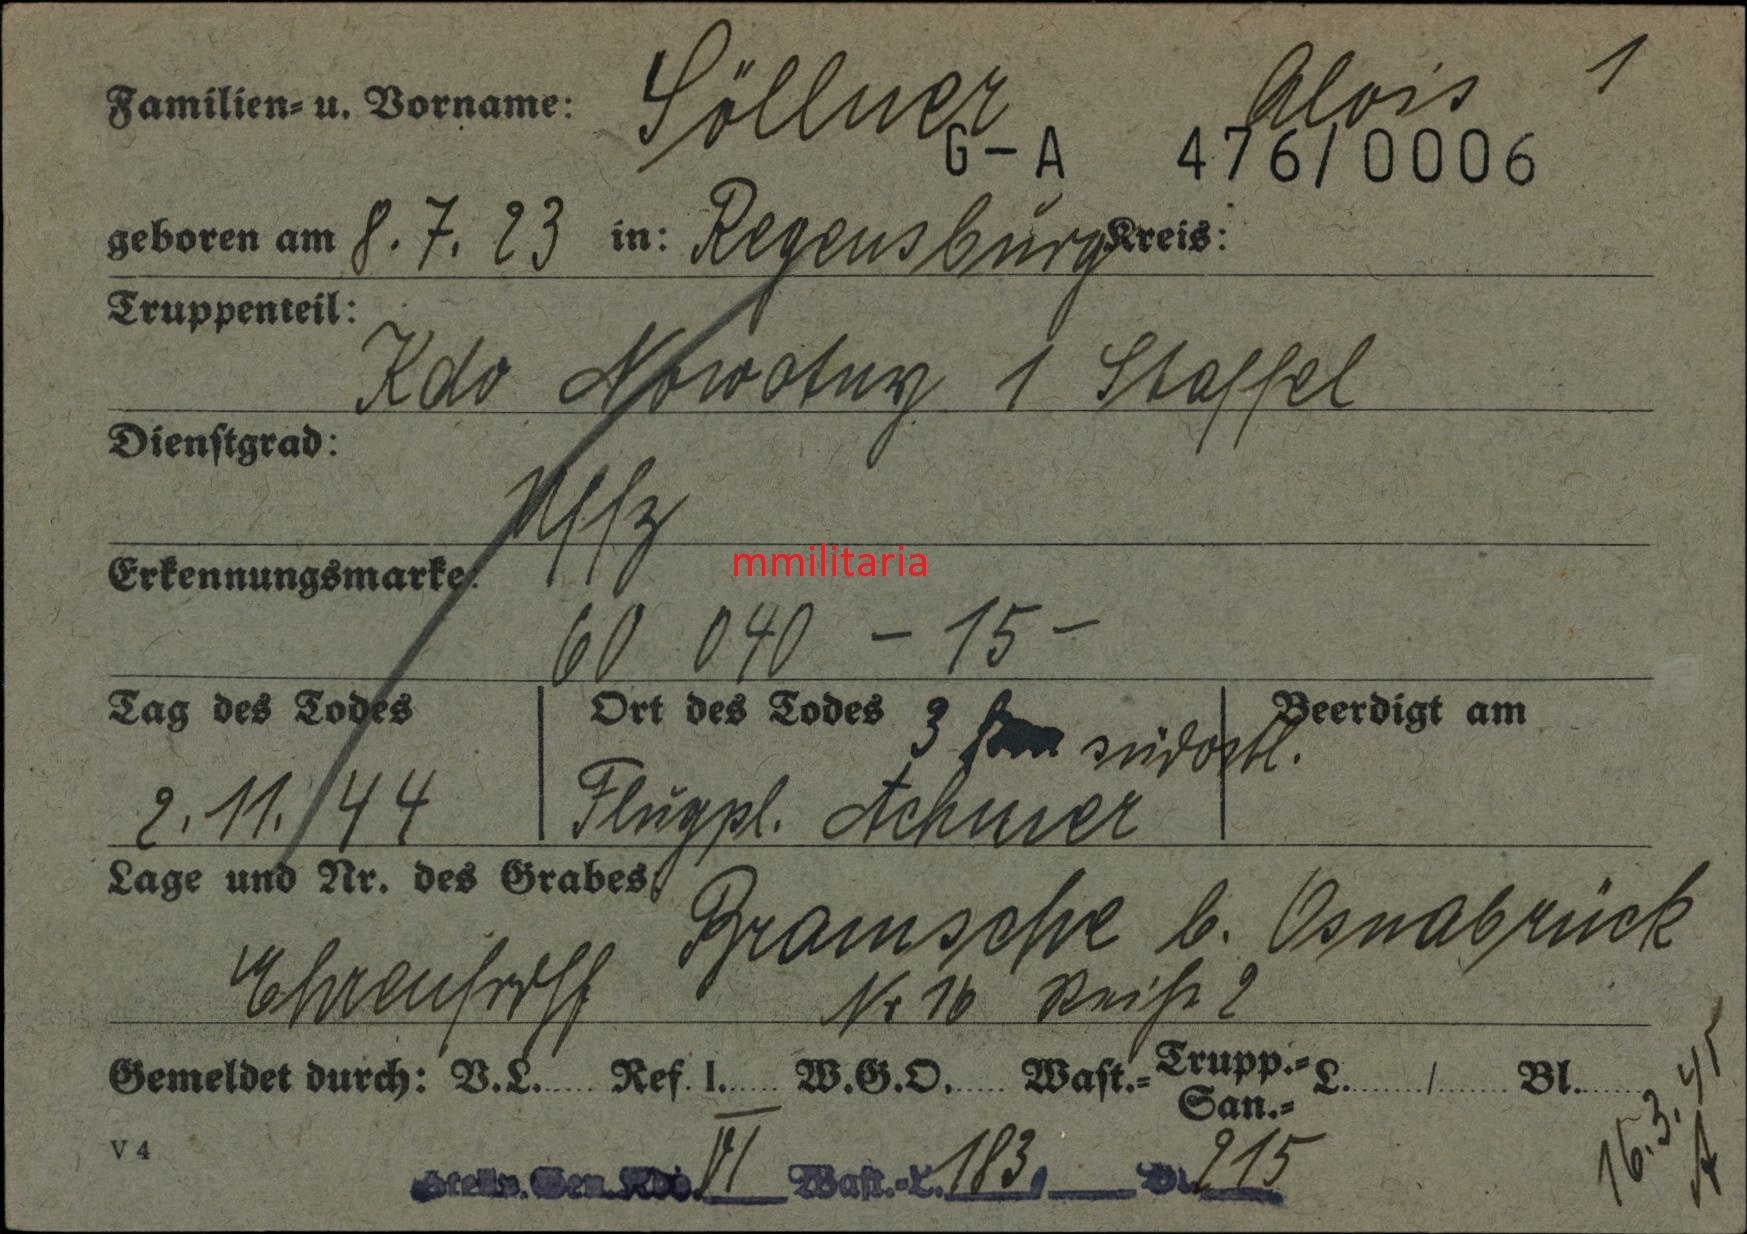 Familien- u. Vorname: Söllner Alois 1
G-A 476/0006
geboren am 8.7.23 in: Regensburg Kreis:
Truppenteil:
Kdo Nowotny 1 Staffel
Dienstgrad:
Uffz
mmilitaria
Erkennungsmarke:
60 040 - 15 -
Tag des Todes Ort des Todes Beerdigt am
3 km südostl.
2.11.44 Flugpl. Achmer
Lage und Nr. des Grabes:
Bramsche b. Osnabrück
Ehrenfrdhf Nr 16 Reihe 2
Gemeldet durch: V.L..... Ref. I...... W.G.O...... Wast.- Trupp.- San.- L......../....... Bl.......
16.3.45
A
V 4
Stellv. Gen. Kdo. VI Wast.-L. 183/ Bl. 215